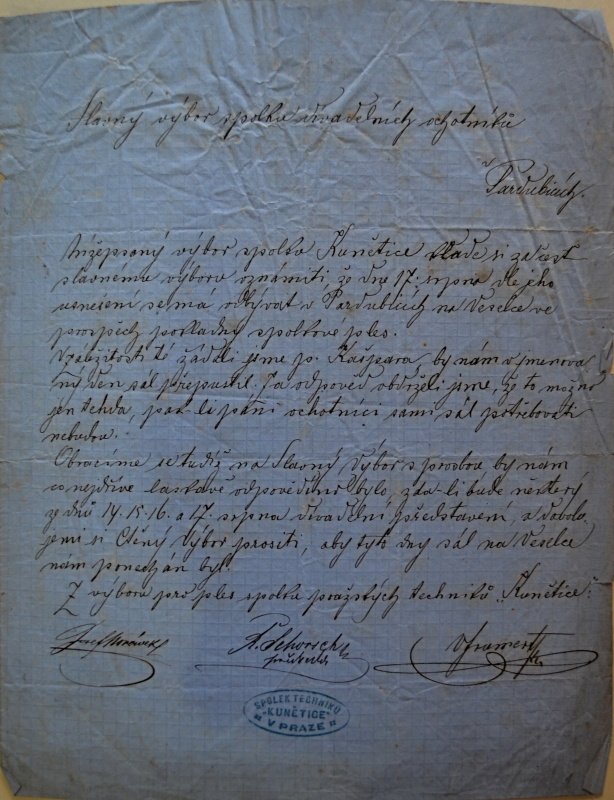 Slavný výbor spolku divadelních ochotníků
v Pardubicích.
Nížepsaný výbor spolku Kunětice klade si za čest
slavnému výboru oznámiti, že dne 17. srpna dle jeho
usnesení se má odbývat v Pardubicích na Veselce ve
prospěch pokladny spolkové ples.
V záležitosti té žádali jsme p. Kašpara by nám v jmenova
ný den sál přepustil. Za odpověď obdrželi jsme, že to možno
jen tehda, pak-li páni ochotníci sami sál potřebovati
nebudou.
Obracíme se tudíž na Slavný Výbor s prosbou by nám
co nejdříve laskavě odpověděno bylo, zda-li bude některý
ze dnů 14. 15. 16. a 17. srpna divadelní představení, a dovolu
jemi si Ctěný Výbor prositi, aby tyto dny sál na Veselce
nám ponechán byl.
Z výboru pro ples spolku pražských techniků „Kunětice“:
Josef
SPOLEK TECHNIKŮ
"KUNĚTICE"
V PRAZE